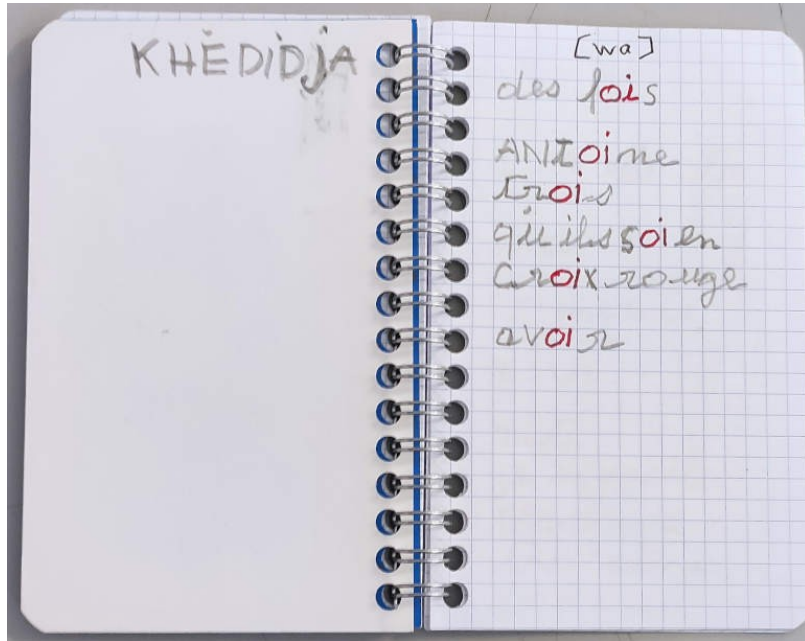 KHÉDiDjA
[wa]
des fois
ANtoine
trois
qu'ils soien
Croix rouge
avoir